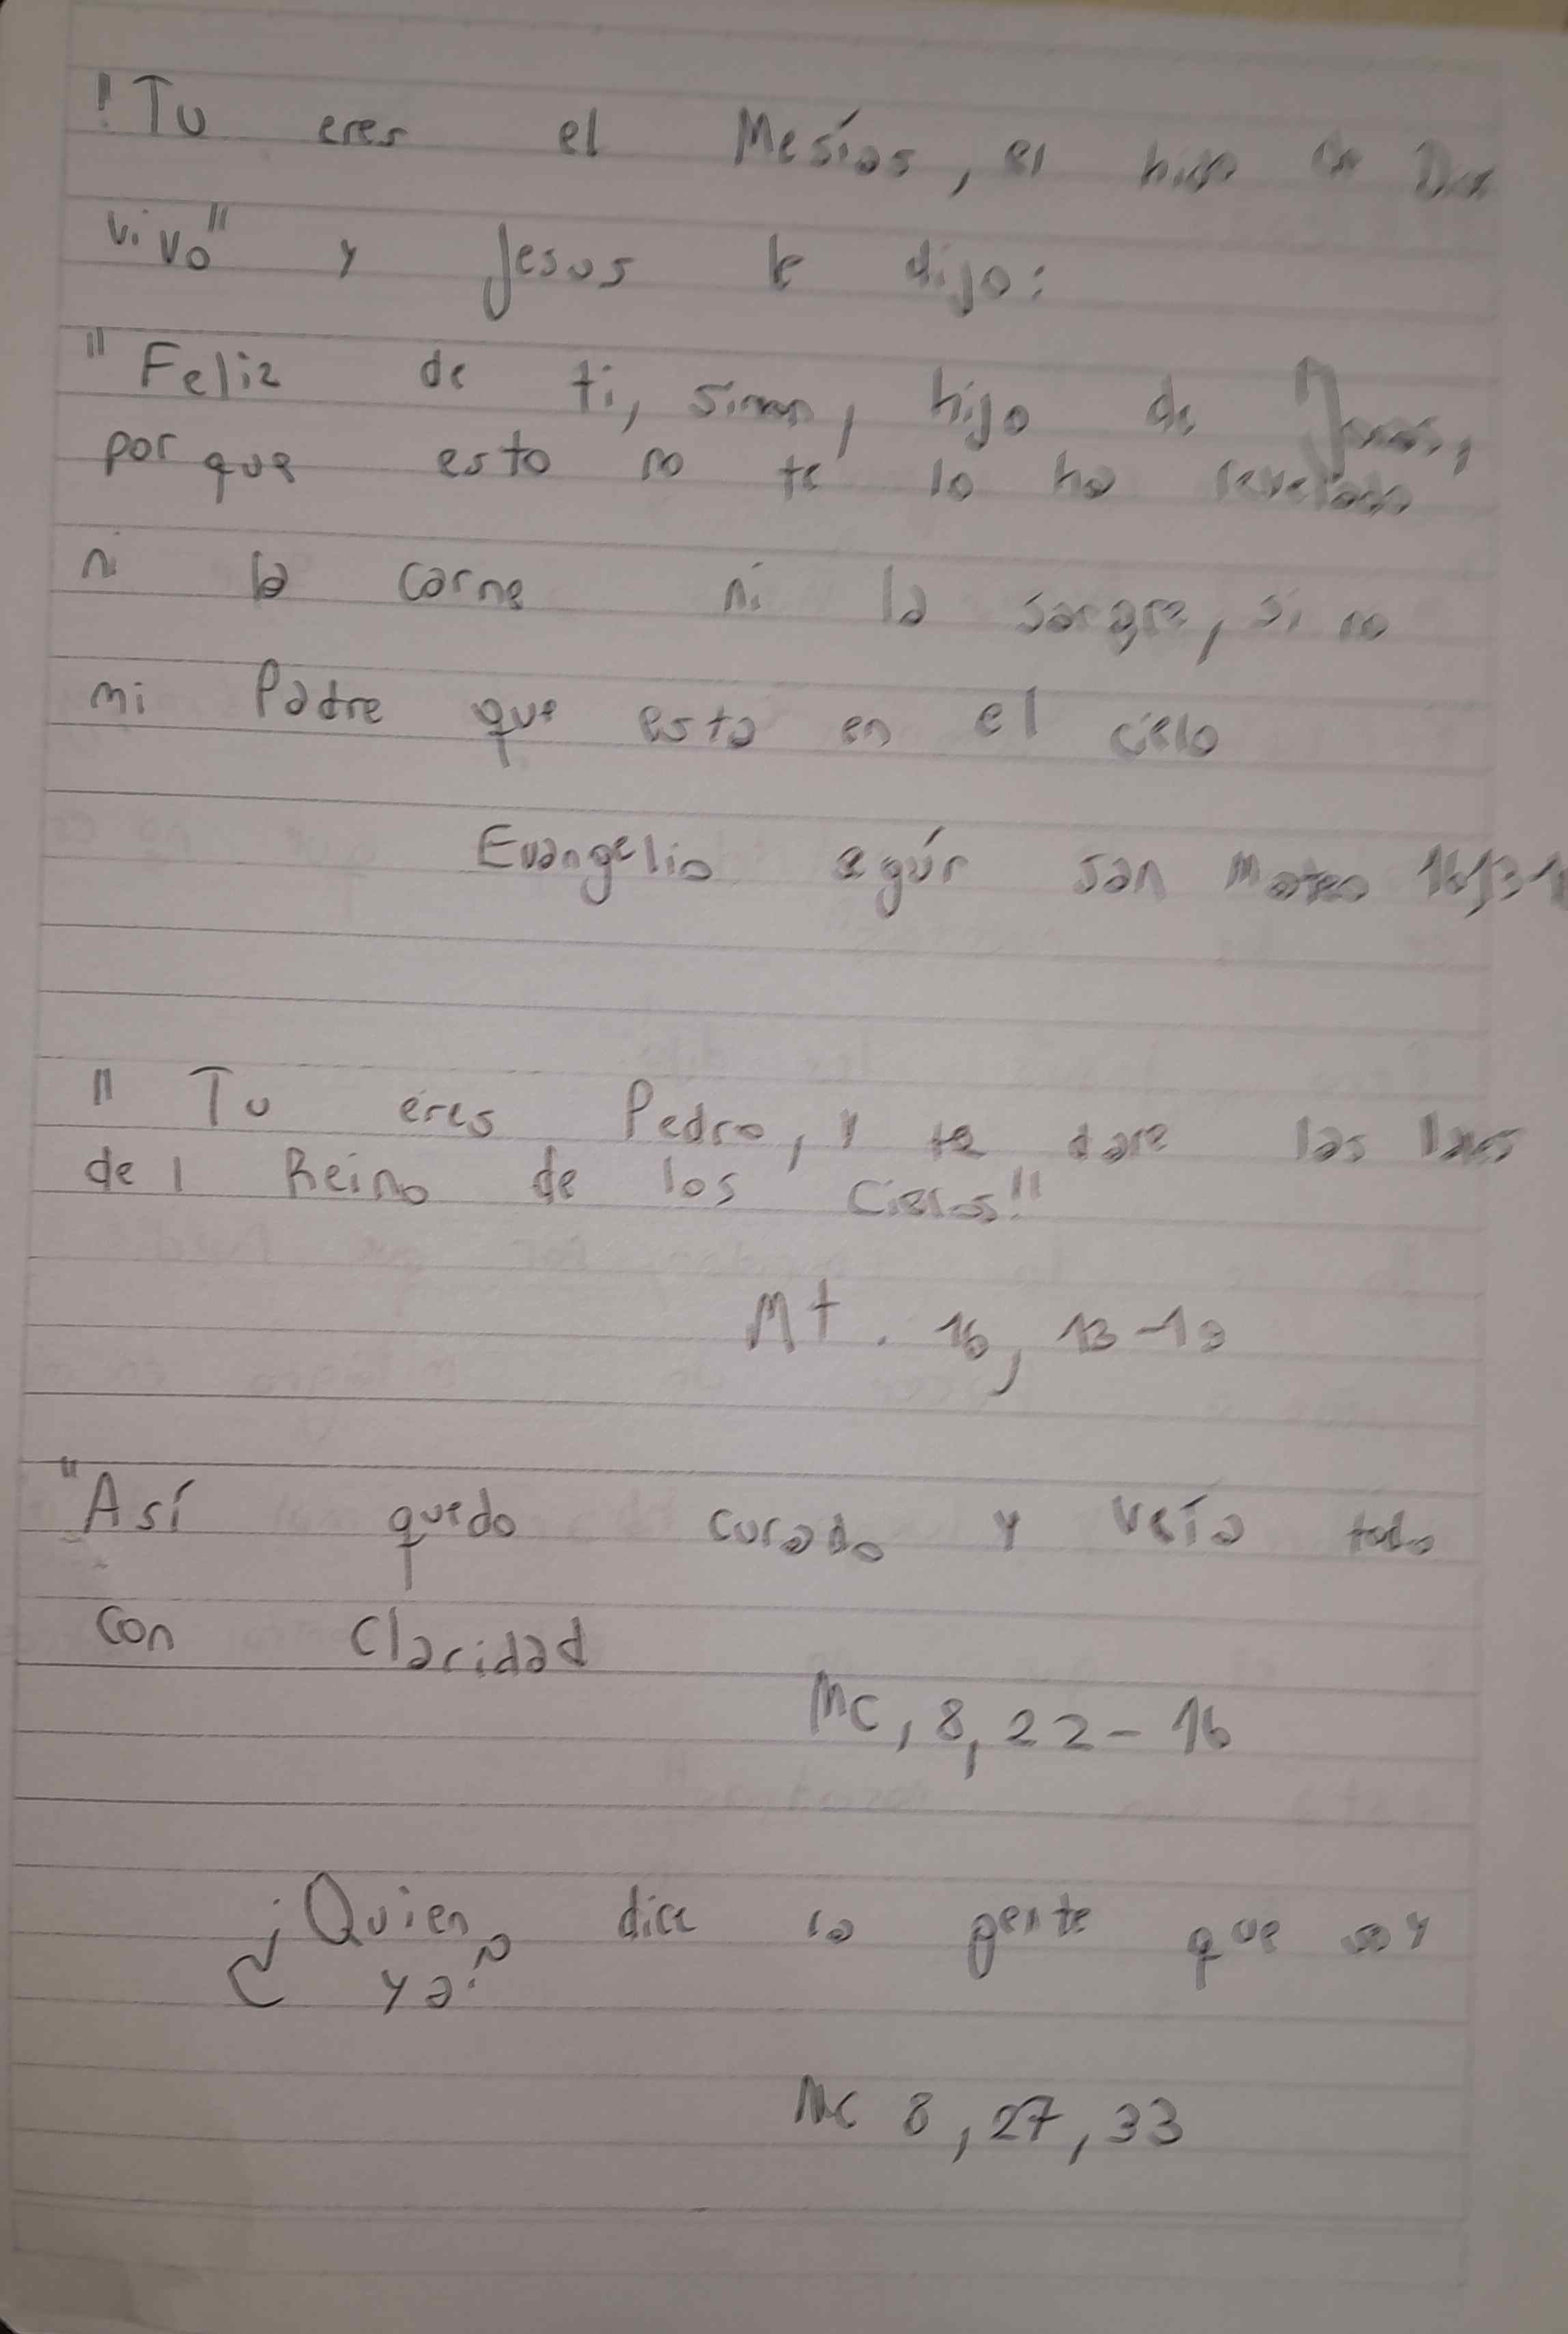 !Tu eres el Mesías, el hijo de Dios
vivo" y Jesus le dijo:
"Feliz de ti, simon, hijo de Jonás,
por que esto no te lo ha revelado
ni la carne ni la sangre, si no
mi Padre que esta en el cielo
Evangelio egún san Mateo
"Tu eres Pedro, y te dare las
del Reino de los Cielos!"
Mt. 16, 13-19
"Así quedo curado y veía todo
con Claridad
Mc, 8, 22-16
¿Quien dice la gente que soy
yo?
Mc 8, 27, 33